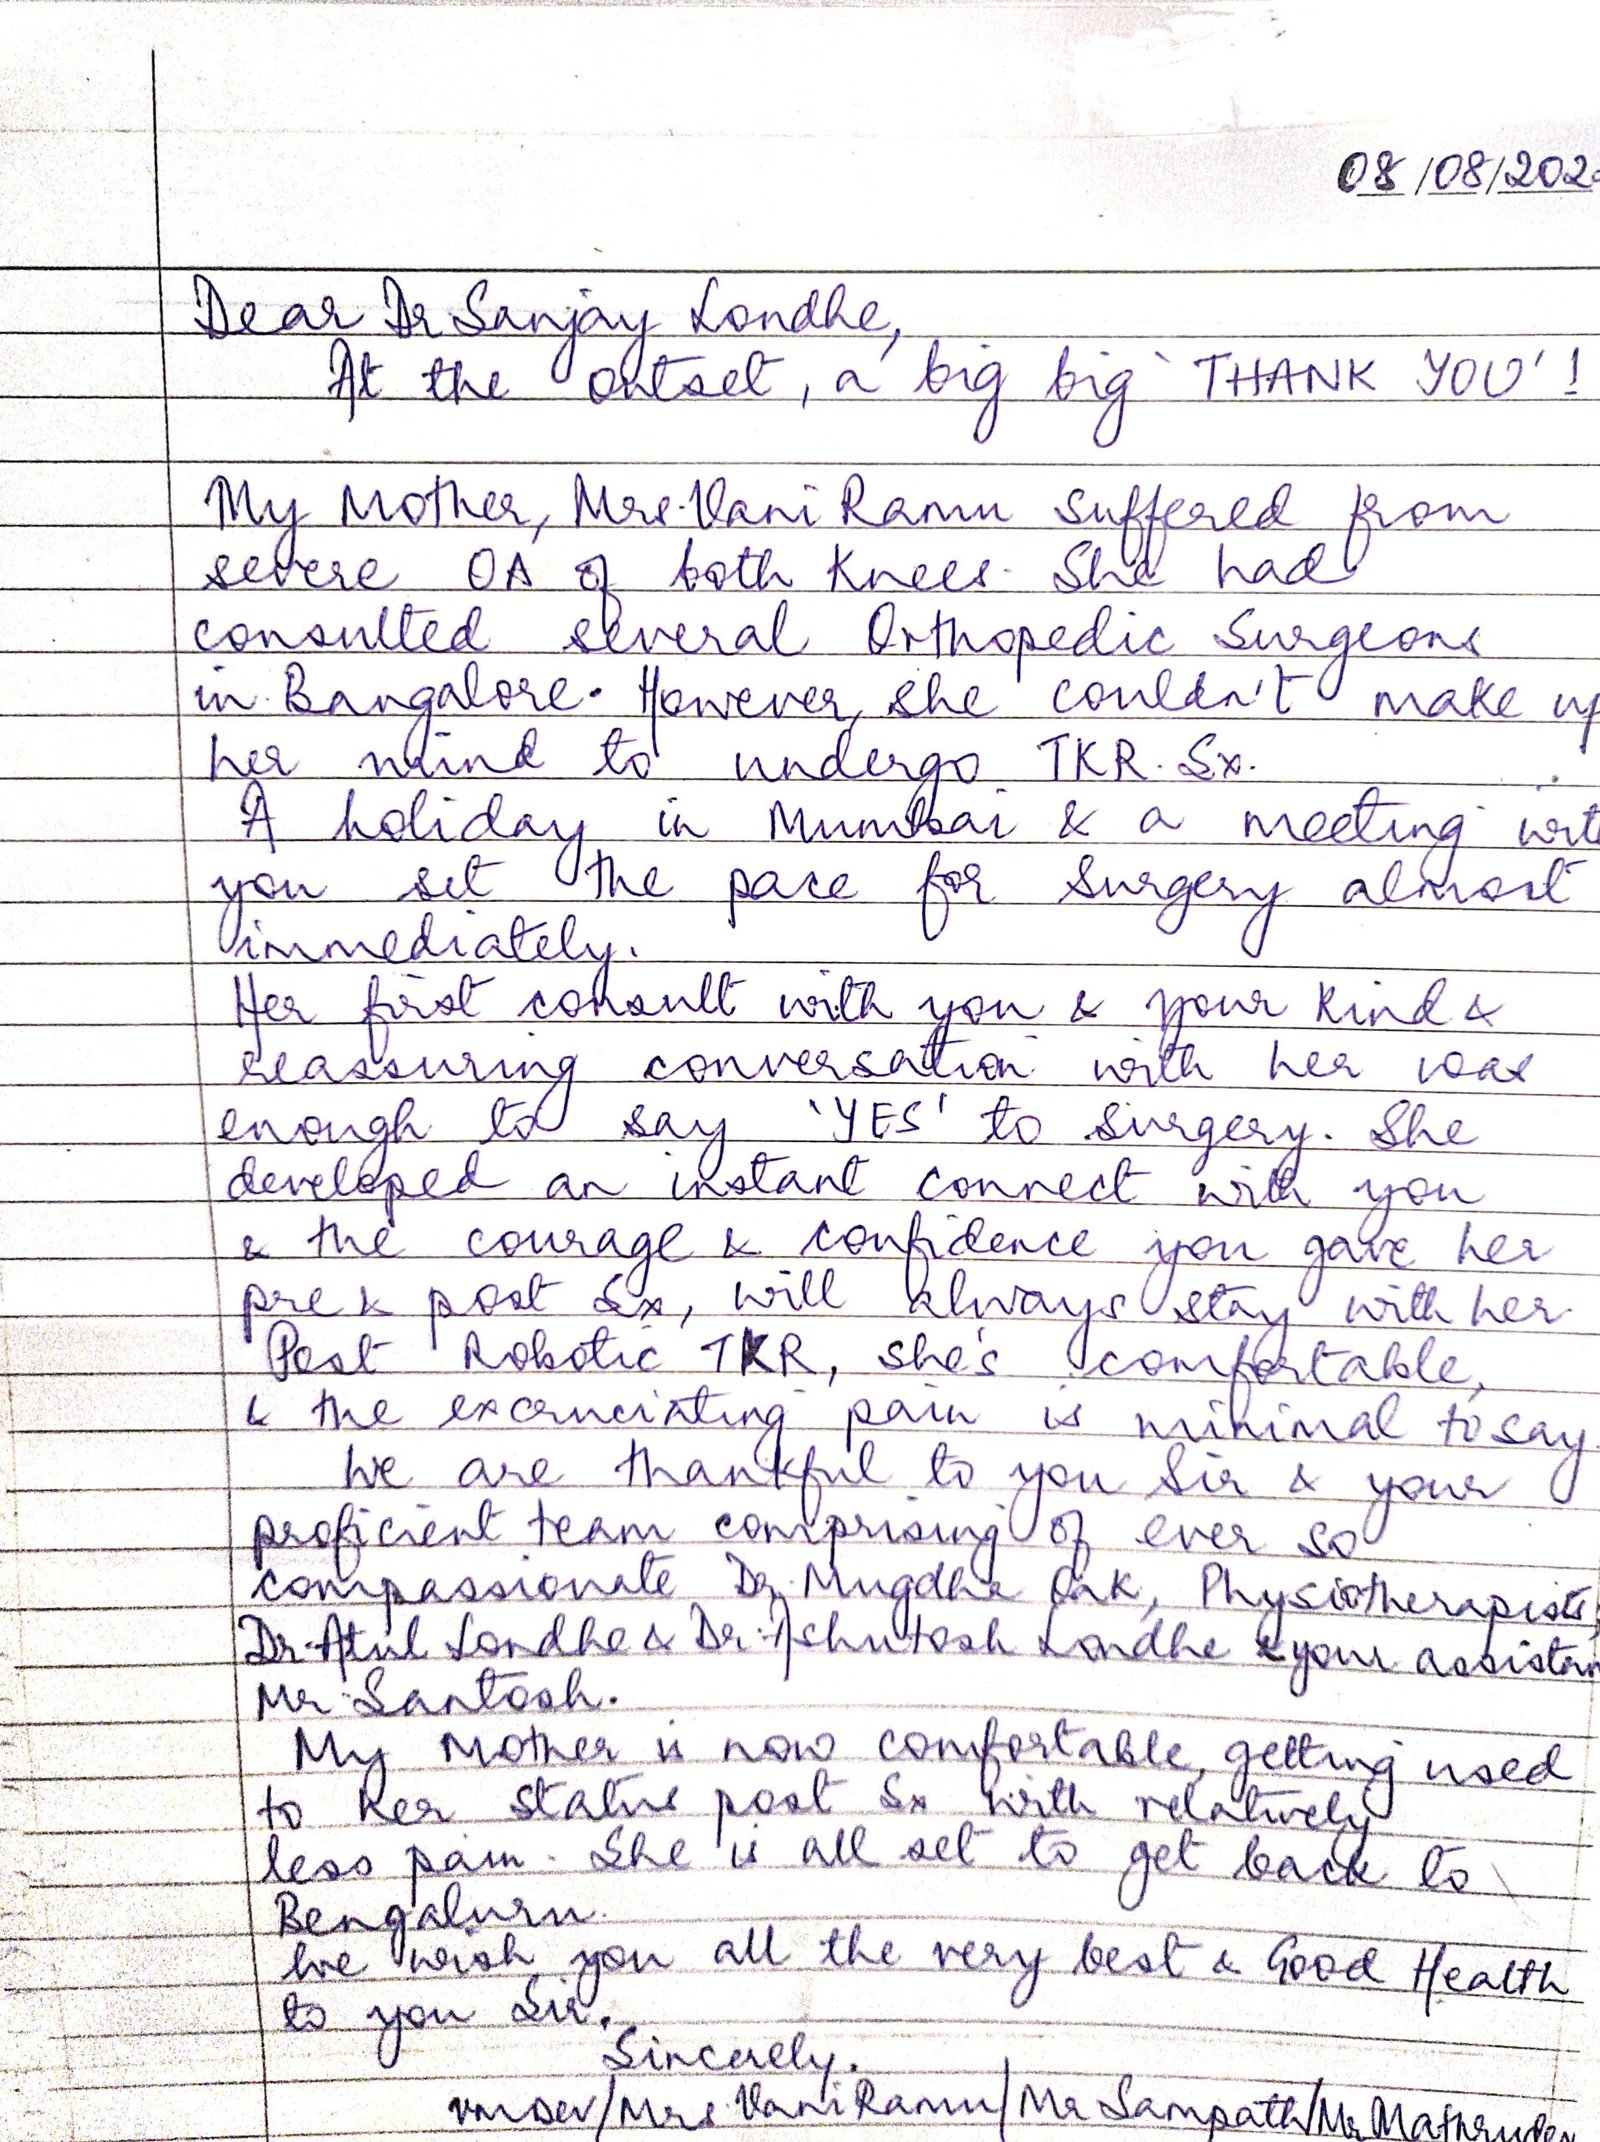 08/08/202
Dear Dr Sanjay Londhe,
At the outset, a big big 'THANK YOU'!
My Mother, Mrs. Vani Ramu suffered from
severe OA of both Knees. She had
consulted several Orthopedic Surgeons
in Bangalore. However, she couldn't make up
her mind to undergo TKR. Sx.
A holiday in Mumbai & a meeting with
you set the pace for surgery almost
immediately.
Her first consult with you & your Kind &
reassuring conversation with her was
enough to say 'YES' to surgery. She
developed an instant connect with you
& the courage & confidence you gave her
pre & post Sx, will always stay with her.
Post Robotic TKR, she's comfortable,
& the excruciating pain is minimal to say.
We are thankful to you Sir & your
proficient team comprising of ever so
compassionate Dr. Mugdha Oak, Physiotherapists,
Dr. Atul Londhe & Dr. Ashutosh Londhe & your assistan
Mr Santosh.
My Mother is now comfortable, getting used
to her status post Sx with relatively
less pain. She is all set to get back to
Bengaluru.
We wish you all the very best & Good Health
to you Sir.
Sincerely.
/Mrs. Vani Ramu/Mr Sampath/Mr